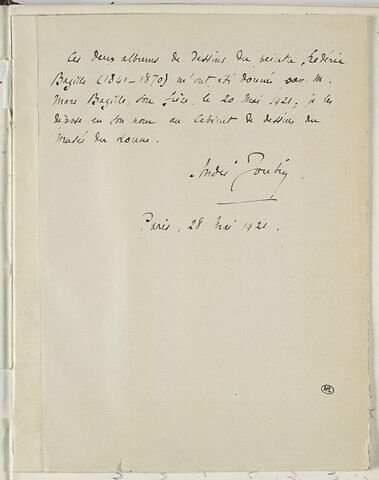 Ces deux albums de dessins du peintre Frédéric
Bazille (1841-1870) m'ont été donnés par M.
Marc Bazille, son frère, le 20 Mai 1921, je les
dépose en son nom au Cabinet de dessins du
Musée du Louvre.
André Joubin
Paris, 28 Mai 1921.